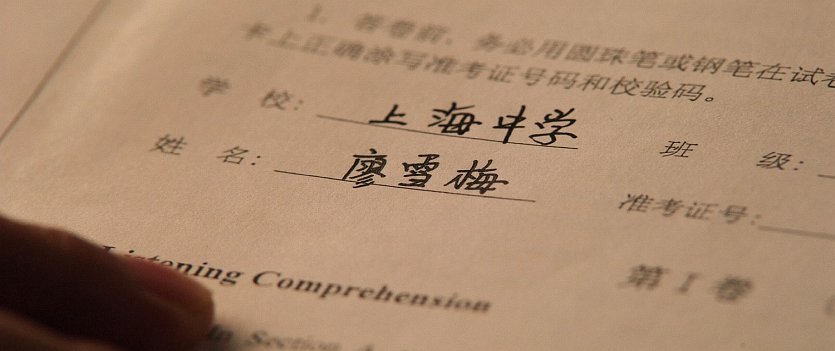 1. 答卷前，务必用圆珠笔或钢笔在试卷
卡上正确涂写准考证号码和校验码。
学 校：上海中学 班 级：
姓 名：廖雪梅 准考证号：
第 I 卷
Listening Comprehension
in Section A